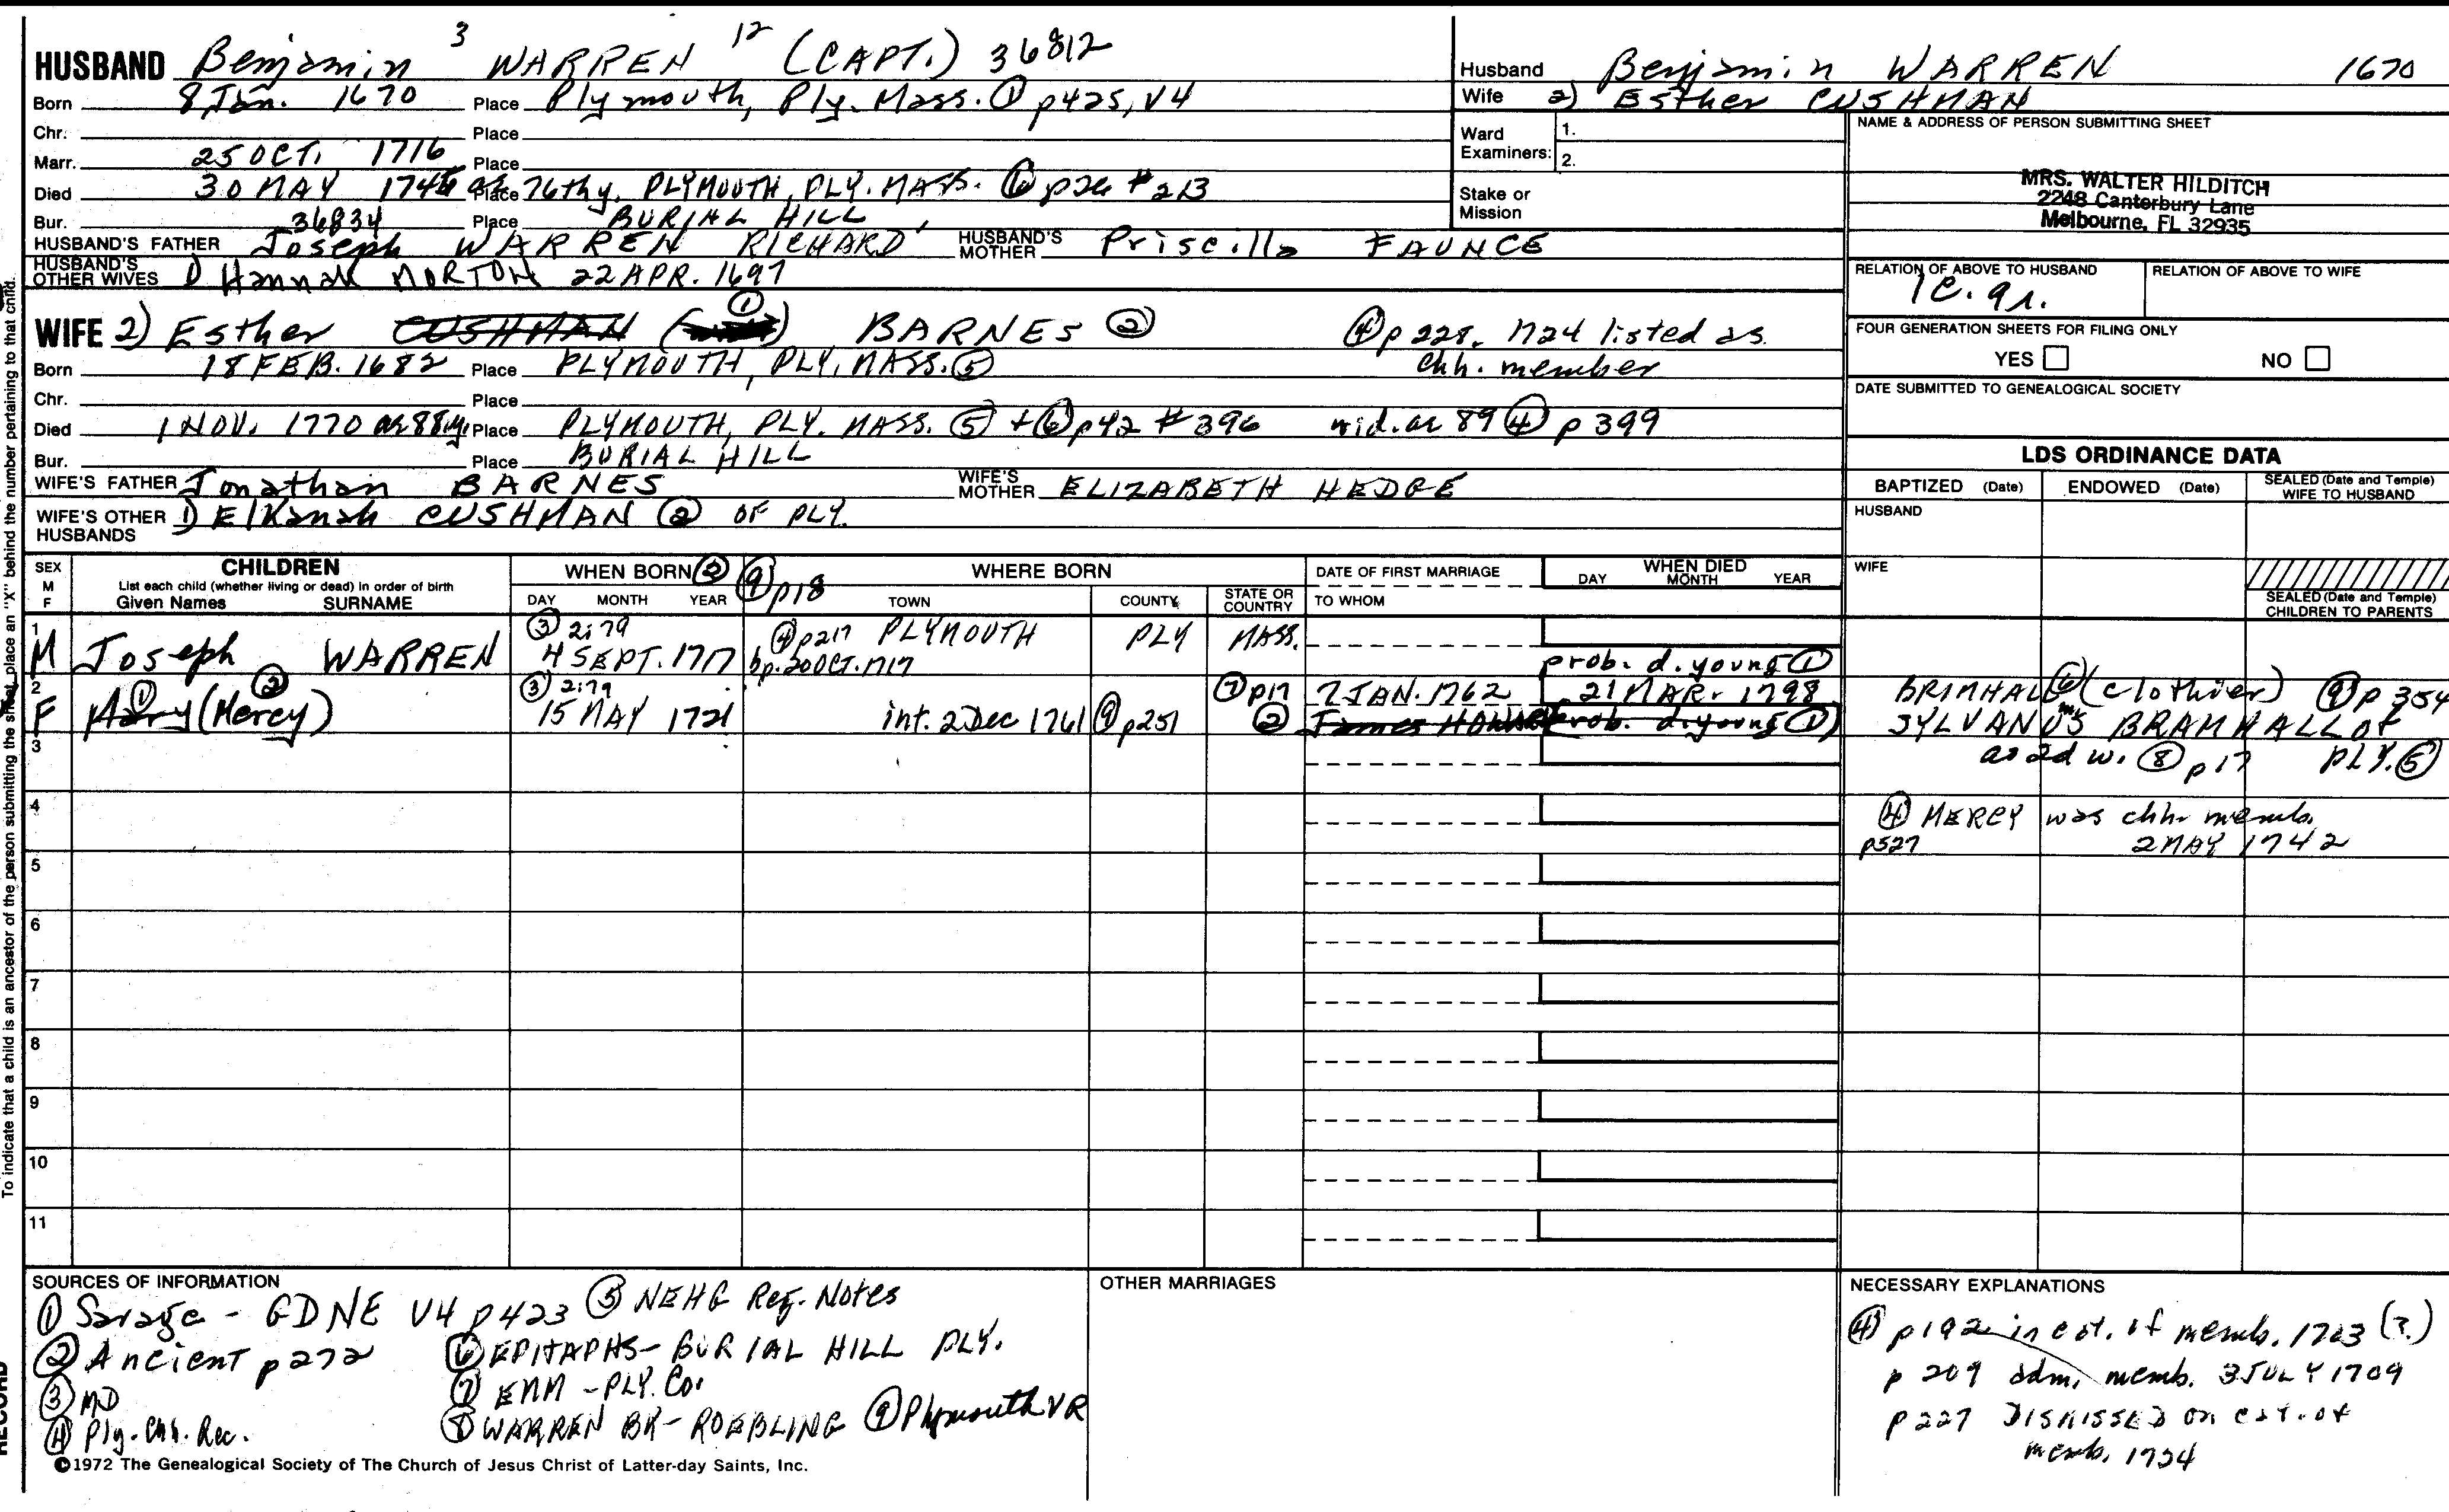 HUSBAND Benjamin 3 WARREN 12 (CAPT.) 36812
Born 8 Jan. 1670 Place Plymouth, Ply. Mass. ① p425, V4
Chr. Place
Marr. 25 OCT. 1716 Place
Died 30 MAY 1746 ae 76thy. Place PLYMOUTH, PLY. MASS. ⑥ p26 #213
Bur. 36834 Place BURIAL HILL
HUSBAND'S FATHER Joseph WARREN RICHARD HUSBAND'S MOTHER Priscilla FAUNCE
HUSBAND'S OTHER WIVES 1) Hannah MORTON 22 APR. 1697
WIFE 2) Esther CUSHMAN ① BARNES ② ④ p 228. 1724 listed as
chh. member
Born 18 FEB. 1682 Place PLYMOUTH, PLY. MASS. ⑤
Chr. Place
Died 1 NOV. 1770 ae 88 y. Place PLYMOUTH, PLY. MASS. ⑤ + ⑥ p42 #396 wid. ae 89 ④ p 399
Bur. Place BURIAL HILL
WIFE'S FATHER Jonathan BARNES WIFE'S MOTHER ELIZABETH HEDGE
WIFE'S OTHER HUSBANDS 1) Elkanah CUSHMAN ② OF PLY.
Husband Benjamin WARREN 1670
Wife 2) Esther CUSHMAN
Ward Examiners: 1.
2.
Stake or Mission
NAME & ADDRESS OF PERSON SUBMITTING SHEET
MRS. WALTER HILDITCH
2248 Canterbury Lane
Melbourne, FL 32935
RELATION OF ABOVE TO HUSBAND RELATION OF ABOVE TO WIFE
1C. 9r.
FOUR GENERATION SHEETS FOR FILING ONLY
YES NO
DATE SUBMITTED TO GENEALOGICAL SOCIETY
LDS ORDINANCE DATA
BAPTIZED (Date) ENDOWED (Date) SEALED (Date and Temple) WIFE TO HUSBAND
HUSBAND
WIFE
SEALED (Date and Temple) CHILDREN TO PARENTS
SEX M F CHILDREN WHEN BORN ② ⑨ p18 WHERE BORN DATE OF FIRST MARRIAGE WHEN DIED
List each child (whether living or dead) in order of birth
Given Names SURNAME DAY MONTH YEAR TOWN COUNTY STATE OR COUNTRY TO WHOM DAY MONTH YEAR
1 ③ 2:79 ④ p217 PLYMOUTH PLY MASS.
M Joseph WARREN 4 SEPT. 1717 bp. 20 OCT. 1717 prob. d. young ①
2 ① ② ③ 2:79 ⑦ p17 7 JAN. 1762 21 MAR. 1798 BRIMHALL ⑥ (clothier) ⑨ p 354
F Mary (Mercy) 15 MAY 1721 int. 2 Dec 1761 ⑨ p251 ② James prob. d. young ①) SYLVANUS BRAMHALL of
3 as 2d w. ⑧ p 17 PLY. ⑤
4 ④ MERCY was chh. memb.
p527 2 MAY 1742
5
6
7
8
9
10
11
To indicate that a child is an ancestor of the person submitting the sheet, place an "X" behind the number pertaining to that child.
RECORD
SOURCES OF INFORMATION
① Savage - GDNE V4 p423 ⑤ NEHG Reg. Notes
② Ancient p 272 ⑥ EPITAPHS - BURIAL HILL PLY.
③ MD ⑦ EMM - PLY. Co.
④ Ply. Chh. Rec. ⑧ WARREN BK - ROEBLING ⑨ Plymouth VR
OTHER MARRIAGES
NECESSARY EXPLANATIONS
④ p 192 in cat. of memb. 1703 (?)
p 209 adm. memb. 3 JULY 1709
p 227 DISMISSED on cat. of
memb. 1724
©1972 The Genealogical Society of The Church of Jesus Christ of Latter-day Saints, Inc.